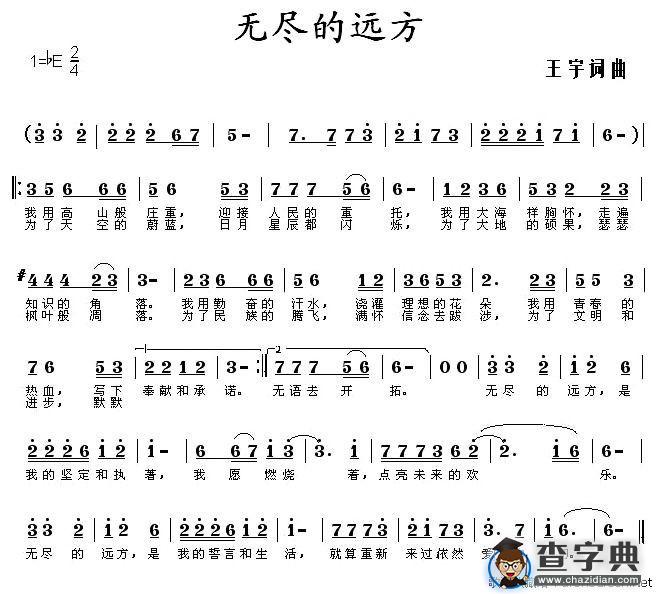 无尽的远方
1=♭E 2/4
王宇词曲
(3 3 2 | 2 2 2 6 7 | 5 - | 7. 7 7 3 | 2 1 7 3 | 2 2 2 1 7 1 | 6 - )
3 5 6 6 6 | 5 6 5 3 | 7 7 7 5 6 | 6 - | 1 2 3 6 | 5 3 2 2 3
我用高山般庄重，迎接人民的重托，我用大海祥胸怀，走遍
为了天空的蔚蓝，日月星辰都闪烁，为了大地的硕果，瑟瑟
#4 4 4 2 3 | 3 - | 7 6 7 6 6 | 5 6 1 2 | 3 6 5 3 | 2. 2 3 | 5 6 5
知识的角落。我用勤奋的汗水，浇灌理想的花朵我用青春的
枫叶般凋落。为了民族的腾飞，满怀信念去跋涉，为了文明和
7 6 5 3 | 2 2 1 2 | 3 - :| 7 7 7 5 6 | 6 - | 0 0 | 3 3 2 | 1 2
1
2
热血，写下奉献和承诺。无语去开拓。无尽的远方，是
进步，默默
2 2 2 6 1 2 | 1 - | 6 6 7 1 3 | 3. 1 | 7 7 7 3 6 2 | 2. 1 6 | 6 -
我的坚定和执著，我愿燃烧着，点亮未来的欢乐。
3 3 2 | 1 2 2 | 2 2 2 6 1 6 | 1 - | 7 7 7 3 | 2 1 2 2 | 3. 7 | 1 6. | 6 -
无尽的远方，是我的誓言和生活，就算重新来过依然爱
查字典
www.chazidian.com